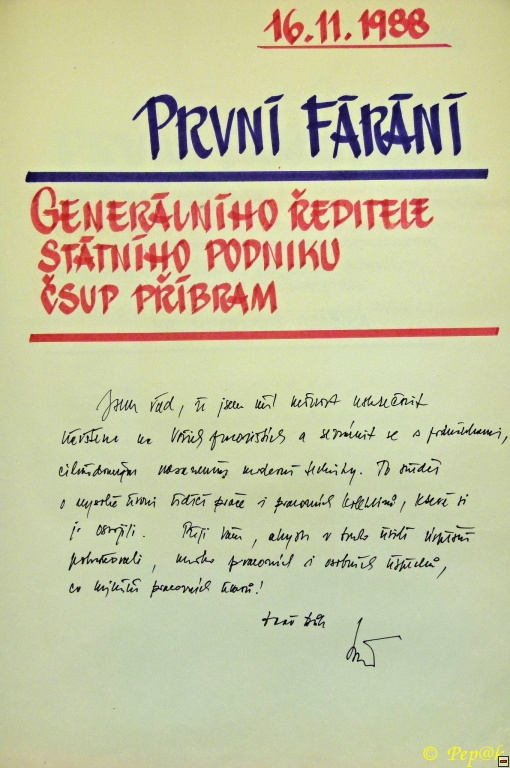 16.11.1988
PRVNÍ FÁRÁNÍ
GENERÁLNÍHO ŘEDITELE
STÁTNÍHO PODNIKU
ČSUP PŘÍBRAM
Jsem rád, že jsem měl možnost uskutečnit
návštěvu na Vašich pracovištích a seznámit se s podmínkami,
nasazením moderní techniky. To svědčí
o vysoké úrovni řídící práce i pracovních kolektivů, které si
je osvojili. Přeji Vám, abyste v tomto úsilí úspěšně
pokračovali, mnoho pracovních i osobních úspěchů,
co nejméně pracovních úrazů!
Zdař Bůh
© Pep@k